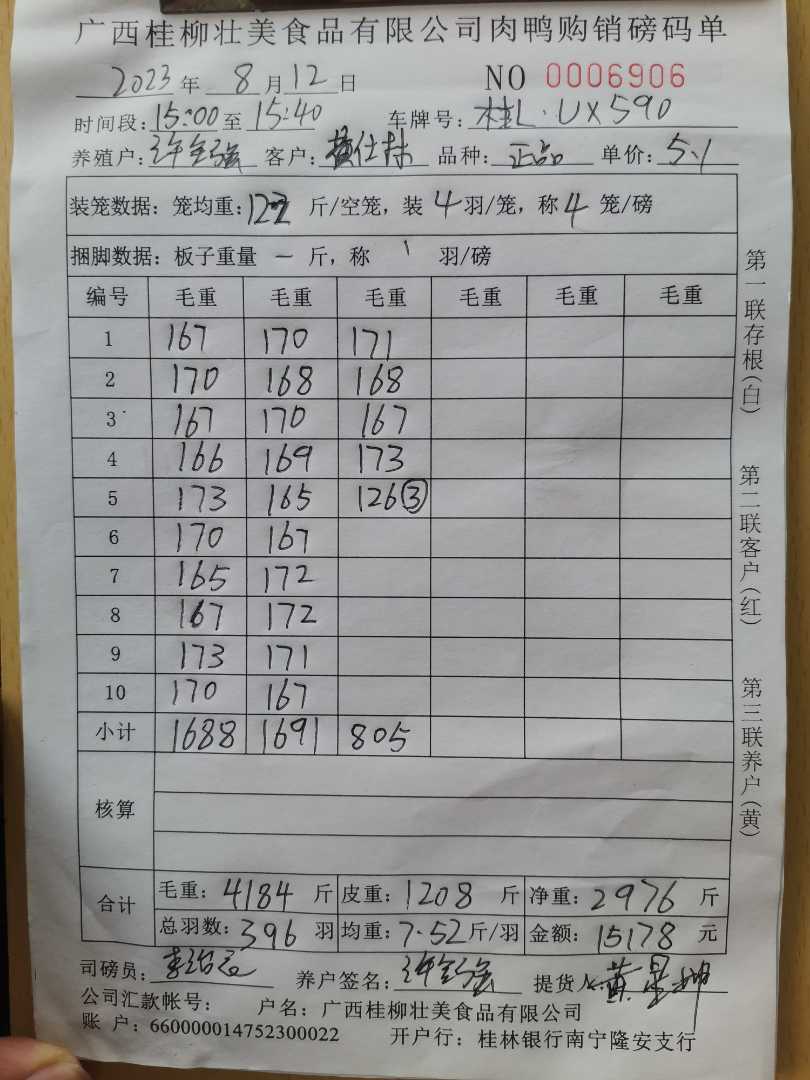 广西桂柳壮美食品有限公司肉鸭购销磅码单
2023年 8月12日 NO 0006906
时间段:15:00至15:40 车牌号:桂L·UX590
养殖户:许金强 客户:黄仕林 品种:正品 单价:5.1
装笼数据:笼均重:12.2 斤/空笼,装 4 羽/笼,称 4 笼/磅
捆脚数据:板子重量 一 斤,称 1 羽/磅
编号 毛重 毛重 毛重 毛重 毛重 毛重
1 167 170 171
2 170 168 168
3 167 170 167
4 166 169 173
5 173 165 126③
6 170 167
7 165 172
8 167 172
9 173 171
10 170 167
小计 1688 1691 805
核算
合计 毛重:4184 斤 皮重:1208 斤 净重:2976 斤
总羽数:396 羽 均重:7.52斤/羽 金额:15178 元
司磅员: 养户签名:许金强 提货人:黄
公司汇款帐号: 户名:广西桂柳壮美食品有限公司
账 户:660000014752300022 开户行:桂林银行南宁隆安支行
第一联存根(白)
第二联客户(红)
第三联养户(黄)